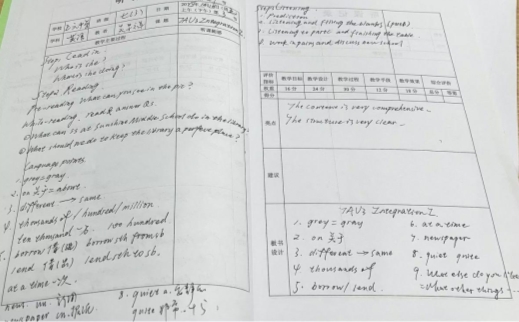 学校
班级 七(11)
日期
学科 英语
教师
课题 7AU3 Integration2
教学主要过程
听课随感
Step1 Lead in
Who is she?
Where is she doing?
Step2 Reading
Pre-reading What can you see in the pic?
While-reading. read & answer Qs.
① What can Ss at Sunshine Middle School do in the library?
② What should we do to keep the library a perfect place?
Language points
1. grey=gray
2. on 关于=about
3. different → same
4. thousands of / hundred / million
ten thousand 一万 100 hundred
5. borrow 借(进) borrow sth from sb
lend 借(出) lend sth to sb.
at a time 一次
news un. 新闻
newspaper cn. 报纸
8. quiet a. 安静的
quite 非常
Step3 Listening
1. Listening and filling the blanks (part1)
2. Listening to part2 and finishing the table
3. Work in pairs and discuss
评价指标 教学目标 教学设计 教学过程 教学手段 教学效果 综合评价
权重
得分 总分 等级
The content is very comprehensive.
The structure is very clear.
建议
板书设计
7AU3 Integration2
1. grey = gray
2. on 关于
3. different → same
4. thousands of
5. borrow / lend
6. at a time
7. newspaper
8. quiet quite
9. What else do you
=What other things